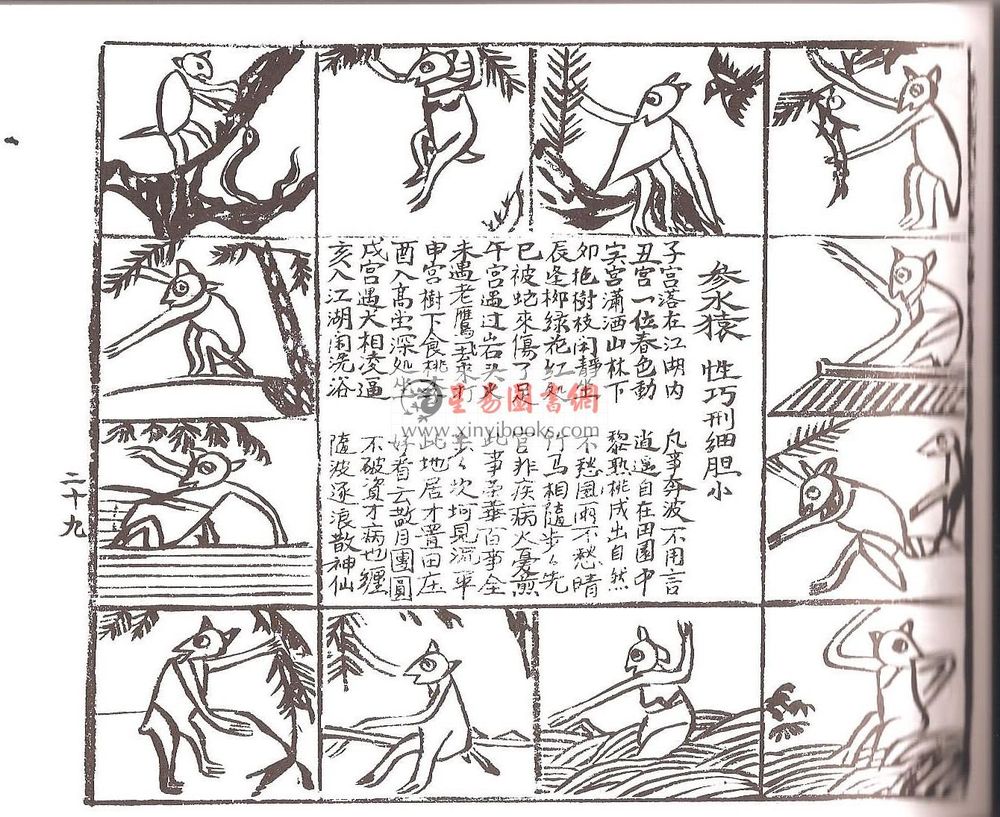 参水猿 性巧刑細胆小
子宫落在江湖内 凡事奔波不用言
丑宫一位春色動 逍遥自在田園中
寅宫瀟洒山林下 黎熟桃成出自然
卯抱樹枝闲靜坐 不愁風雨不愁晴
辰逢柳绿花红处 行马相隨步々先
巳被蛇來傷了足 官非疾病火憂煎
午宫遇过岩头火 此事荣華百事全
未遇老鷹 步々坎坷見流年
申宫樹下食桃 此地居才置田庄
酉入高堂深処坐 好音云散月團圓
戌宫遇犬相凌逼 不破資才病也纏
亥入江湖闹洗浴 隨波逐浪散神仙
二十九
星易圖書網
www.xinyibooks.com